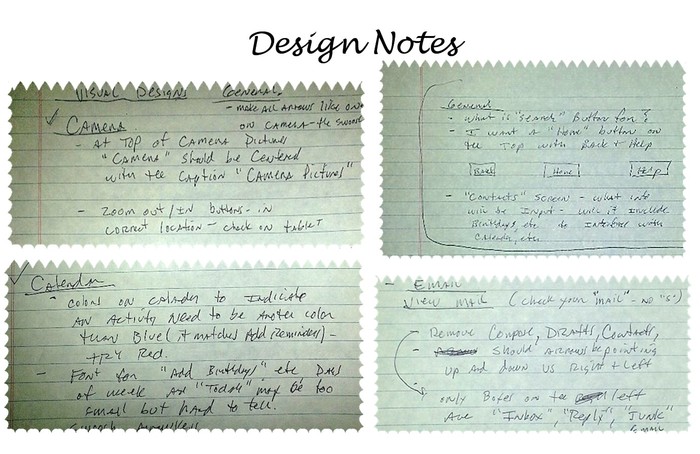 Design Notes
Visual Designs General
- make all arrows like one
✓ Camera on camera - the
- At Top of Camera Pictures
"Camera" should be Centered
with the Caption "Camera Pictures"
- Zoom out/in buttons - in
correct location - check on tablet
General
- what is "search" Button for?
- I want a "Home" button on
the Top with Back + Help
Back Home Help
- "Contacts" screen - what info
will be Input - will it include
Birthdays, etc. to Interface with
Calendar, etc.
✓ Calendar
- colors on calendar to Indicate
an Activity need to be another color
than Blue (it matches Add Reminders) -
try Red.
- Font for "Add Birthday" etc Days
of week and "Today" may be too
small but hard to tell.
- Email
View Mail (check your "mail" - no "s")
- Remove Compose, Drafts, Contacts,
- should arrows be pointing
up and down vs Right + Left
- only Boxes on the left
Are "Inbox", "Reply", "Junk"
Email